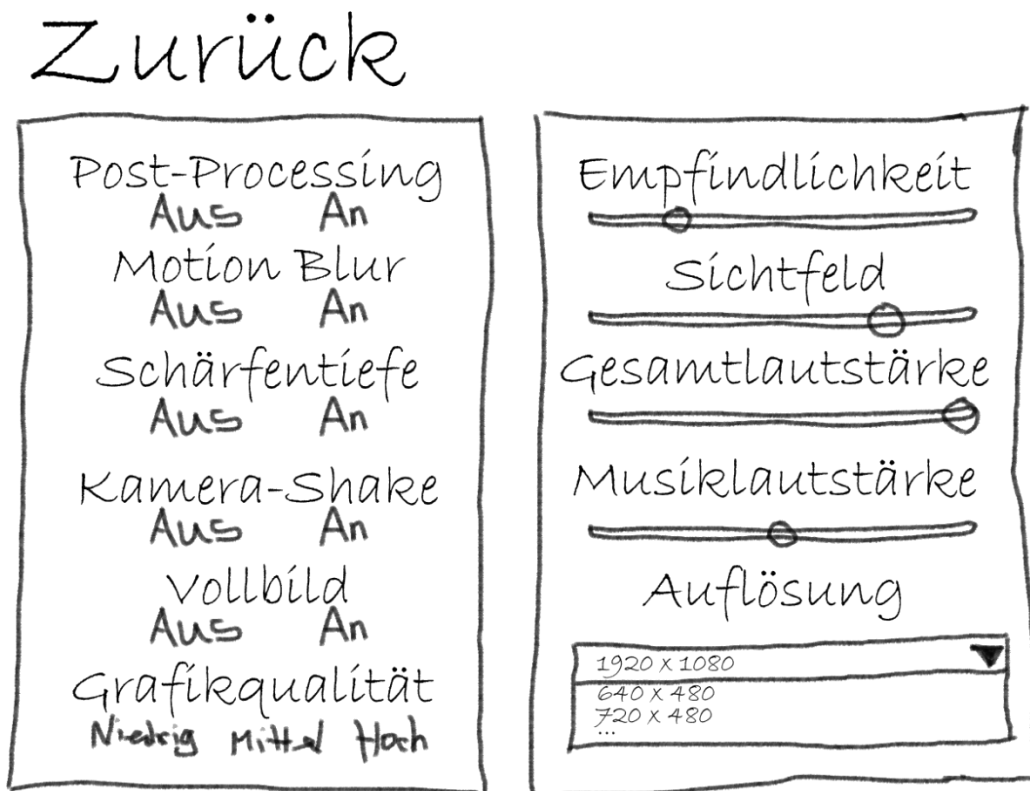 Zurück
Post-Processing
Aus An
Motion Blur
Aus An
Schärfentiefe
Aus An
Kamera-Shake
Aus An
Vollbild
Aus An
Grafikqualität
Niedrig Mittel Hoch
Empfindlichkeit
Sichtfeld
Gesamtlautstärke
Musiklautstärke
Auflösung
1920 x 1080
640 x 480
720 x 480
...